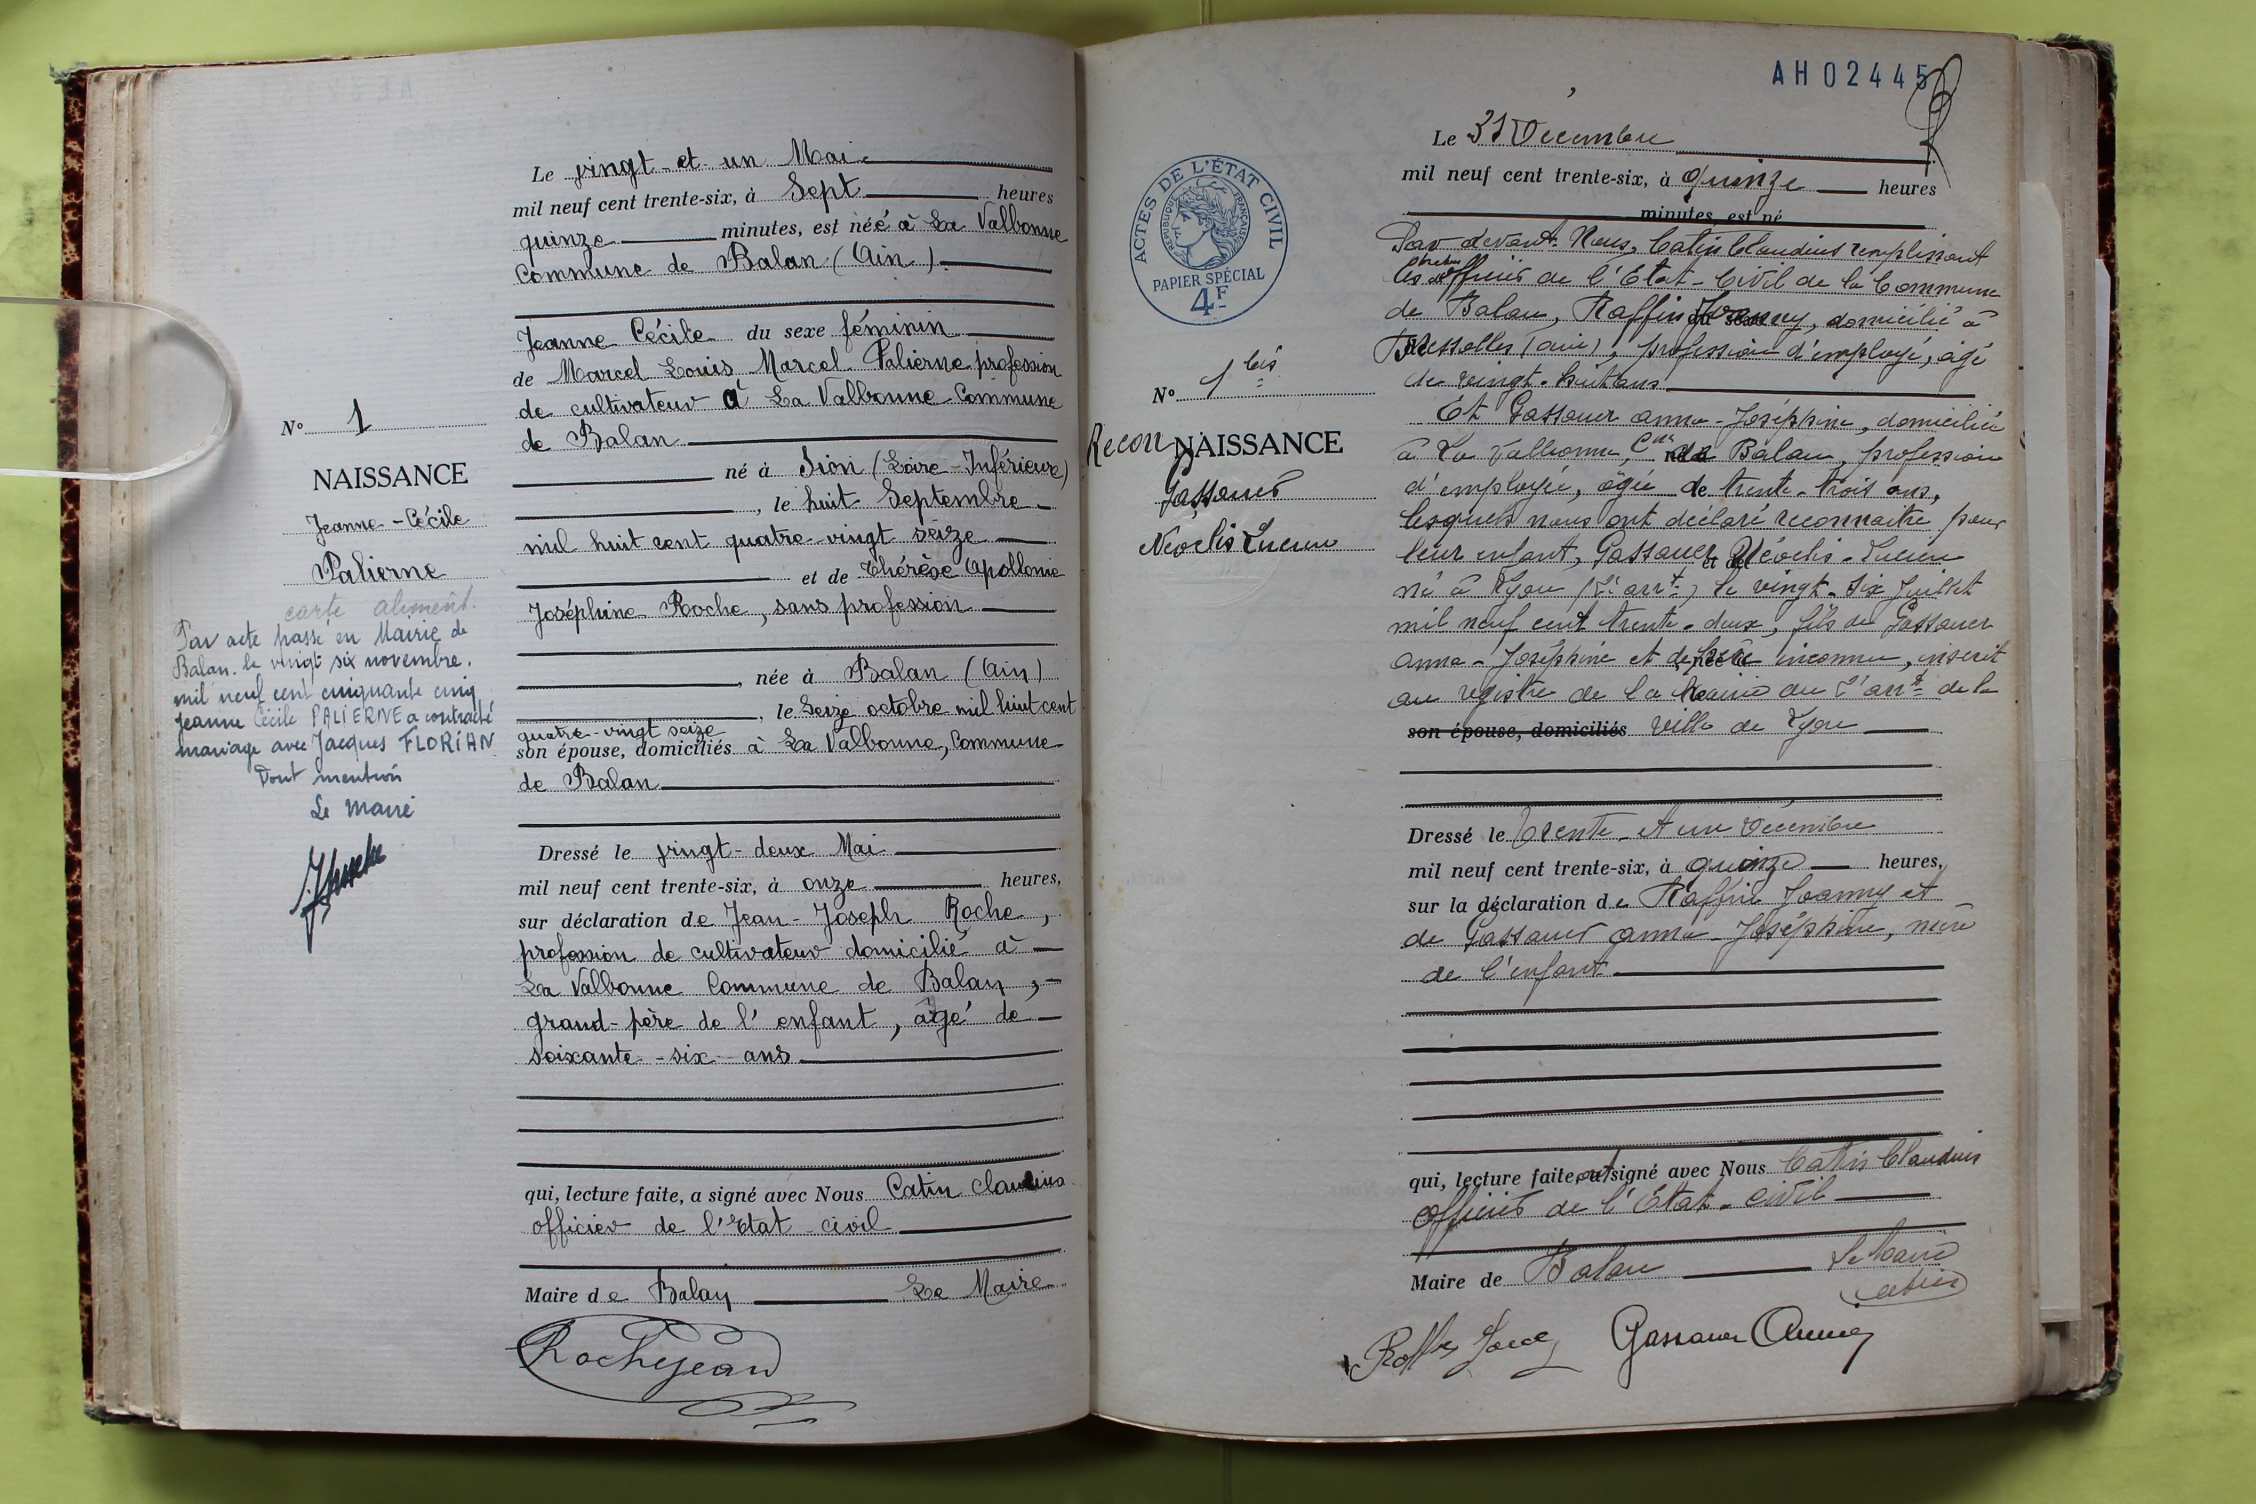 Le vingt et un Mai
mil neuf cent trente-six, à Sept heures
quinze minutes, est née à La Valbonne
Commune de Balan (Ain)
Jeanne Cécile du sexe féminin
de Marcel Louis Marcel Palierne profession
de cultivateur à La Valbonne Commune
de Balan
né à Sion (Loire-Inférieure)
, le huit Septembre
mil huit cent quatre-vingt seize
et de Thérèse Apollonie
Joséphine Roche, sans profession
, née à Balan (Ain)
, le Seize octobre mil huit cent
quatre-vingt seize
son épouse, domiciliés à La Valbonne, Commune
de Balan
Dressé le vingt-deux Mai
mil neuf cent trente-six, à onze heures,
sur déclaration de Jean-Joseph Roche,
profession de cultivateur domicilié à
La Valbonne Commune de Balan,
grand-père de l'enfant, âgé de
soixante-six ans
qui, lecture faite, a signé avec Nous Catin Claudius
officier de l'Etat-civil
Maire de Balan Le Maire
Rochejean
N° 1
NAISSANCE
Jeanne-Cécile
Palierne
carte aliment.
Par acte passé en Mairie de
Balan le vingt six novembre
mil neuf cent cinquante cinq
Jeanne Cécile PALIERNE a contracté
mariage avec Jacques FLORIAN
Dont mention
Le maire
AH02445
ACTES DE L'ÉTAT CIVIL
RÉPUBLIQUE FRANÇAISE
PAPIER SPÉCIAL
4F
N° 1 bis
Recon NAISSANCE
Gassauer
Néoclis Lucien
Le 31 Décembre
mil neuf cent trente-six, à quinze heures
minutes, est né
Par devant Nous, Catin Claudius remplissant
les officier de l'Etat-Civil de la Commune
de Balan, Raffin Joanny, domicilié à
Bressolles (ain), profession d'employé, âgé
de vingt-huit ans
Et Gassauer anna-Joséphine, domiciliée
à La Valbonne, Cne de Balan, profession
d'employée, âgée de trente-trois ans,
lesquels nous ont déclaré reconnaitre pour
leur enfant, Gassauer Néoclis-Lucien
né à Lyon le vingt-six Juillet
mil neuf cent trente-deux, fils de Gassauer
anna-Joséphine et de père inconnu, inscrit
au registre de la Mairie du arrt de la
son épouse, domiciliés ville de Lyon
Dressé le trente et un Décembre
mil neuf cent trente-six, à quinze heures,
sur la déclaration de Raffin Joanny et
de Gassauer anna-Joséphine, mère
de l'enfant
qui, lecture faite, ont signé avec Nous Catin Claudius
officier de l'Etat-civil
Maire de Balan Le Maire
Catin
Gassauer Anna